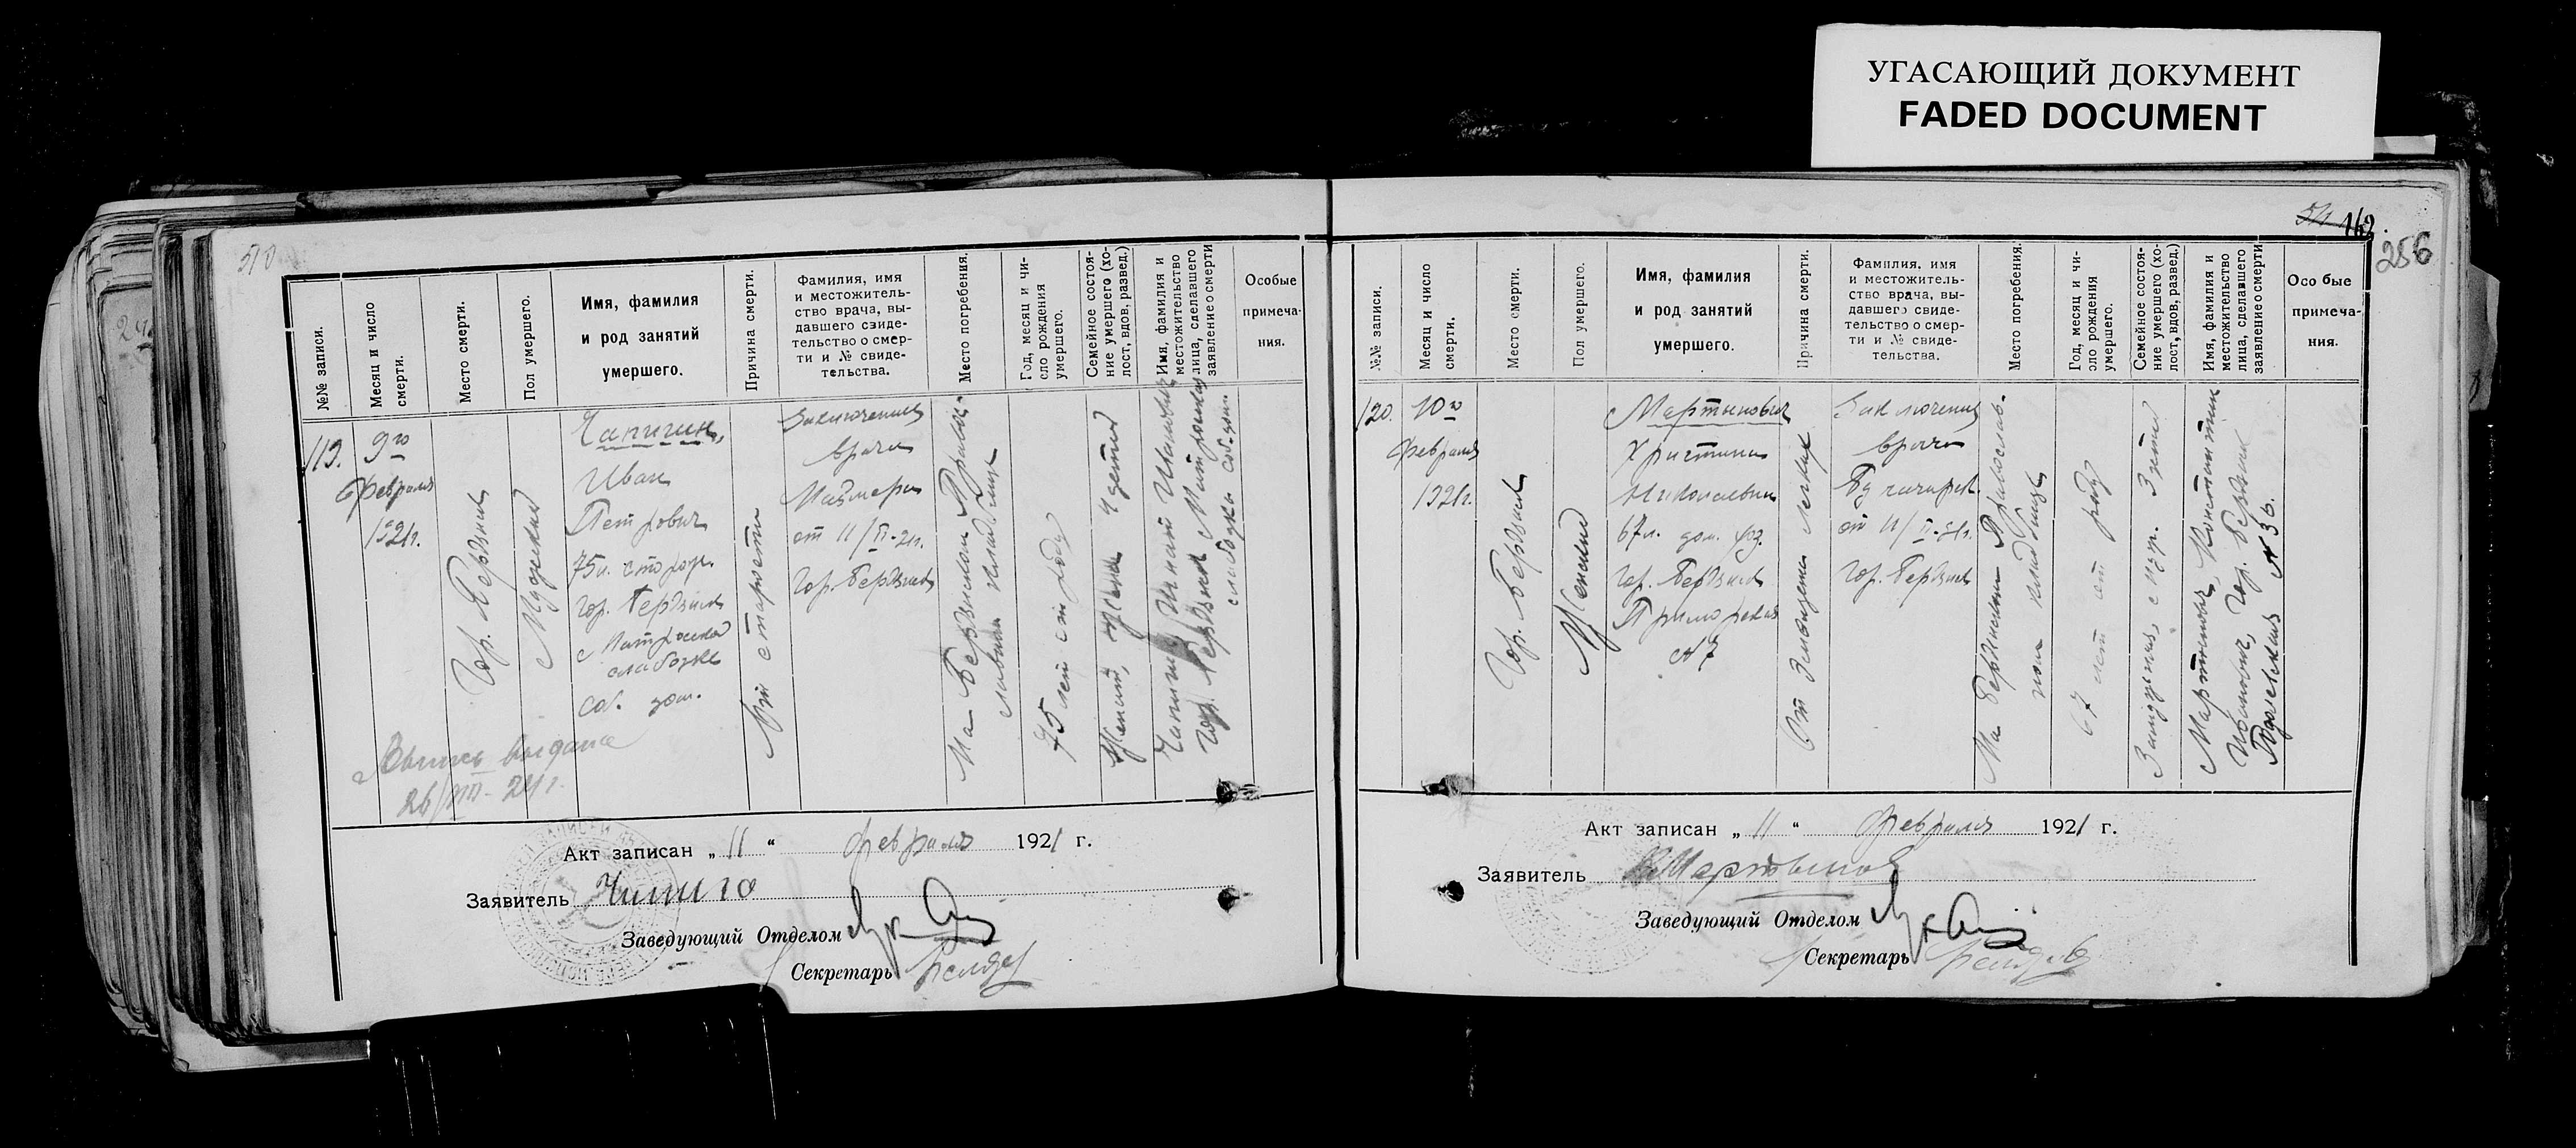 УГАСАЮЩИЙ ДОКУМЕНТ
FADED DOCUMENT
№№ записи.
Месяц и число
смерти.
Место смерти.
Пол умершего.
Имя, фамилия
и род занятий
умершего.
Причина смерти.
Фамилия, имя
и местожитель-
ство врача, вы-
давшего свиде-
тельство о смер-
ти и № свиде-
тельства.
Место погребения.
Год, месяц и чи-
сло рождения
умершего.
Семейное состоя-
ние умершего (хо-
лост, вдов, развед.)
Имя, фамилия и
местожительство
лица, сделавшего
заявление о смерти
Особые
примеча-
ния.
119.
9го
Февраля
1921г.
Гор. Бердянск
Мужской
Чапигин,
Иван
Петрович
75л. сторож.
гор. Бердянск
Матросская
слободке
соб. дом.
От старости
Заключение
врача
от 11/II-21г.
гор. Бердянск
На Бердянском Правос-
лавном кладбище
75 лет от роду
Женат, жена 4 детей
Чапигин Игнат Иванович
гор. Бердянск Матросская
слободка соб. дом.
26/VII-21г.
Акт записан „ 11 “ февраля 1921 г.
Заявитель
Заведующий Отделом
Секретарь
162.
256
№№ записи.
Месяц и число
смерти.
Место смерти.
Пол умершего.
Имя, фамилия
и род занятий
умершего.
Причина смерти.
Фамилия, имя
и местожитель-
ство врача, вы-
давшего свиде-
тельство о смер-
ти и № свиде-
тельства.
Место погребения.
Год, месяц и чи-
сло рождения
умершего.
Семейное состоя-
ние умершего (хо-
лост, вдов, развед.)
Имя, фамилия и
местожительство
лица, сделавшего
заявление о смерти
Особые
примеча-
ния.
120.
10го
Февраля
1921г.
Гор. Бердянск
Женский
Мартынович
Христина
Николаевна
67л. дом. хоз.
гор. Бердянск
Приморская
№7
От Эмфиземы легких
Заключение
врача
от 11/II-21г.
гор. Бердянск
На Бердянском Православ-
ном кладбище
67 лет от роду
Замужняя, с муж. 3 дети
Мартынович, Константин
Иванович, гор. Бердянск
№ 36.
Акт записан „ 11 “ февраля 1921 г.
Заявитель
Заведующий Отделом
Секретарь